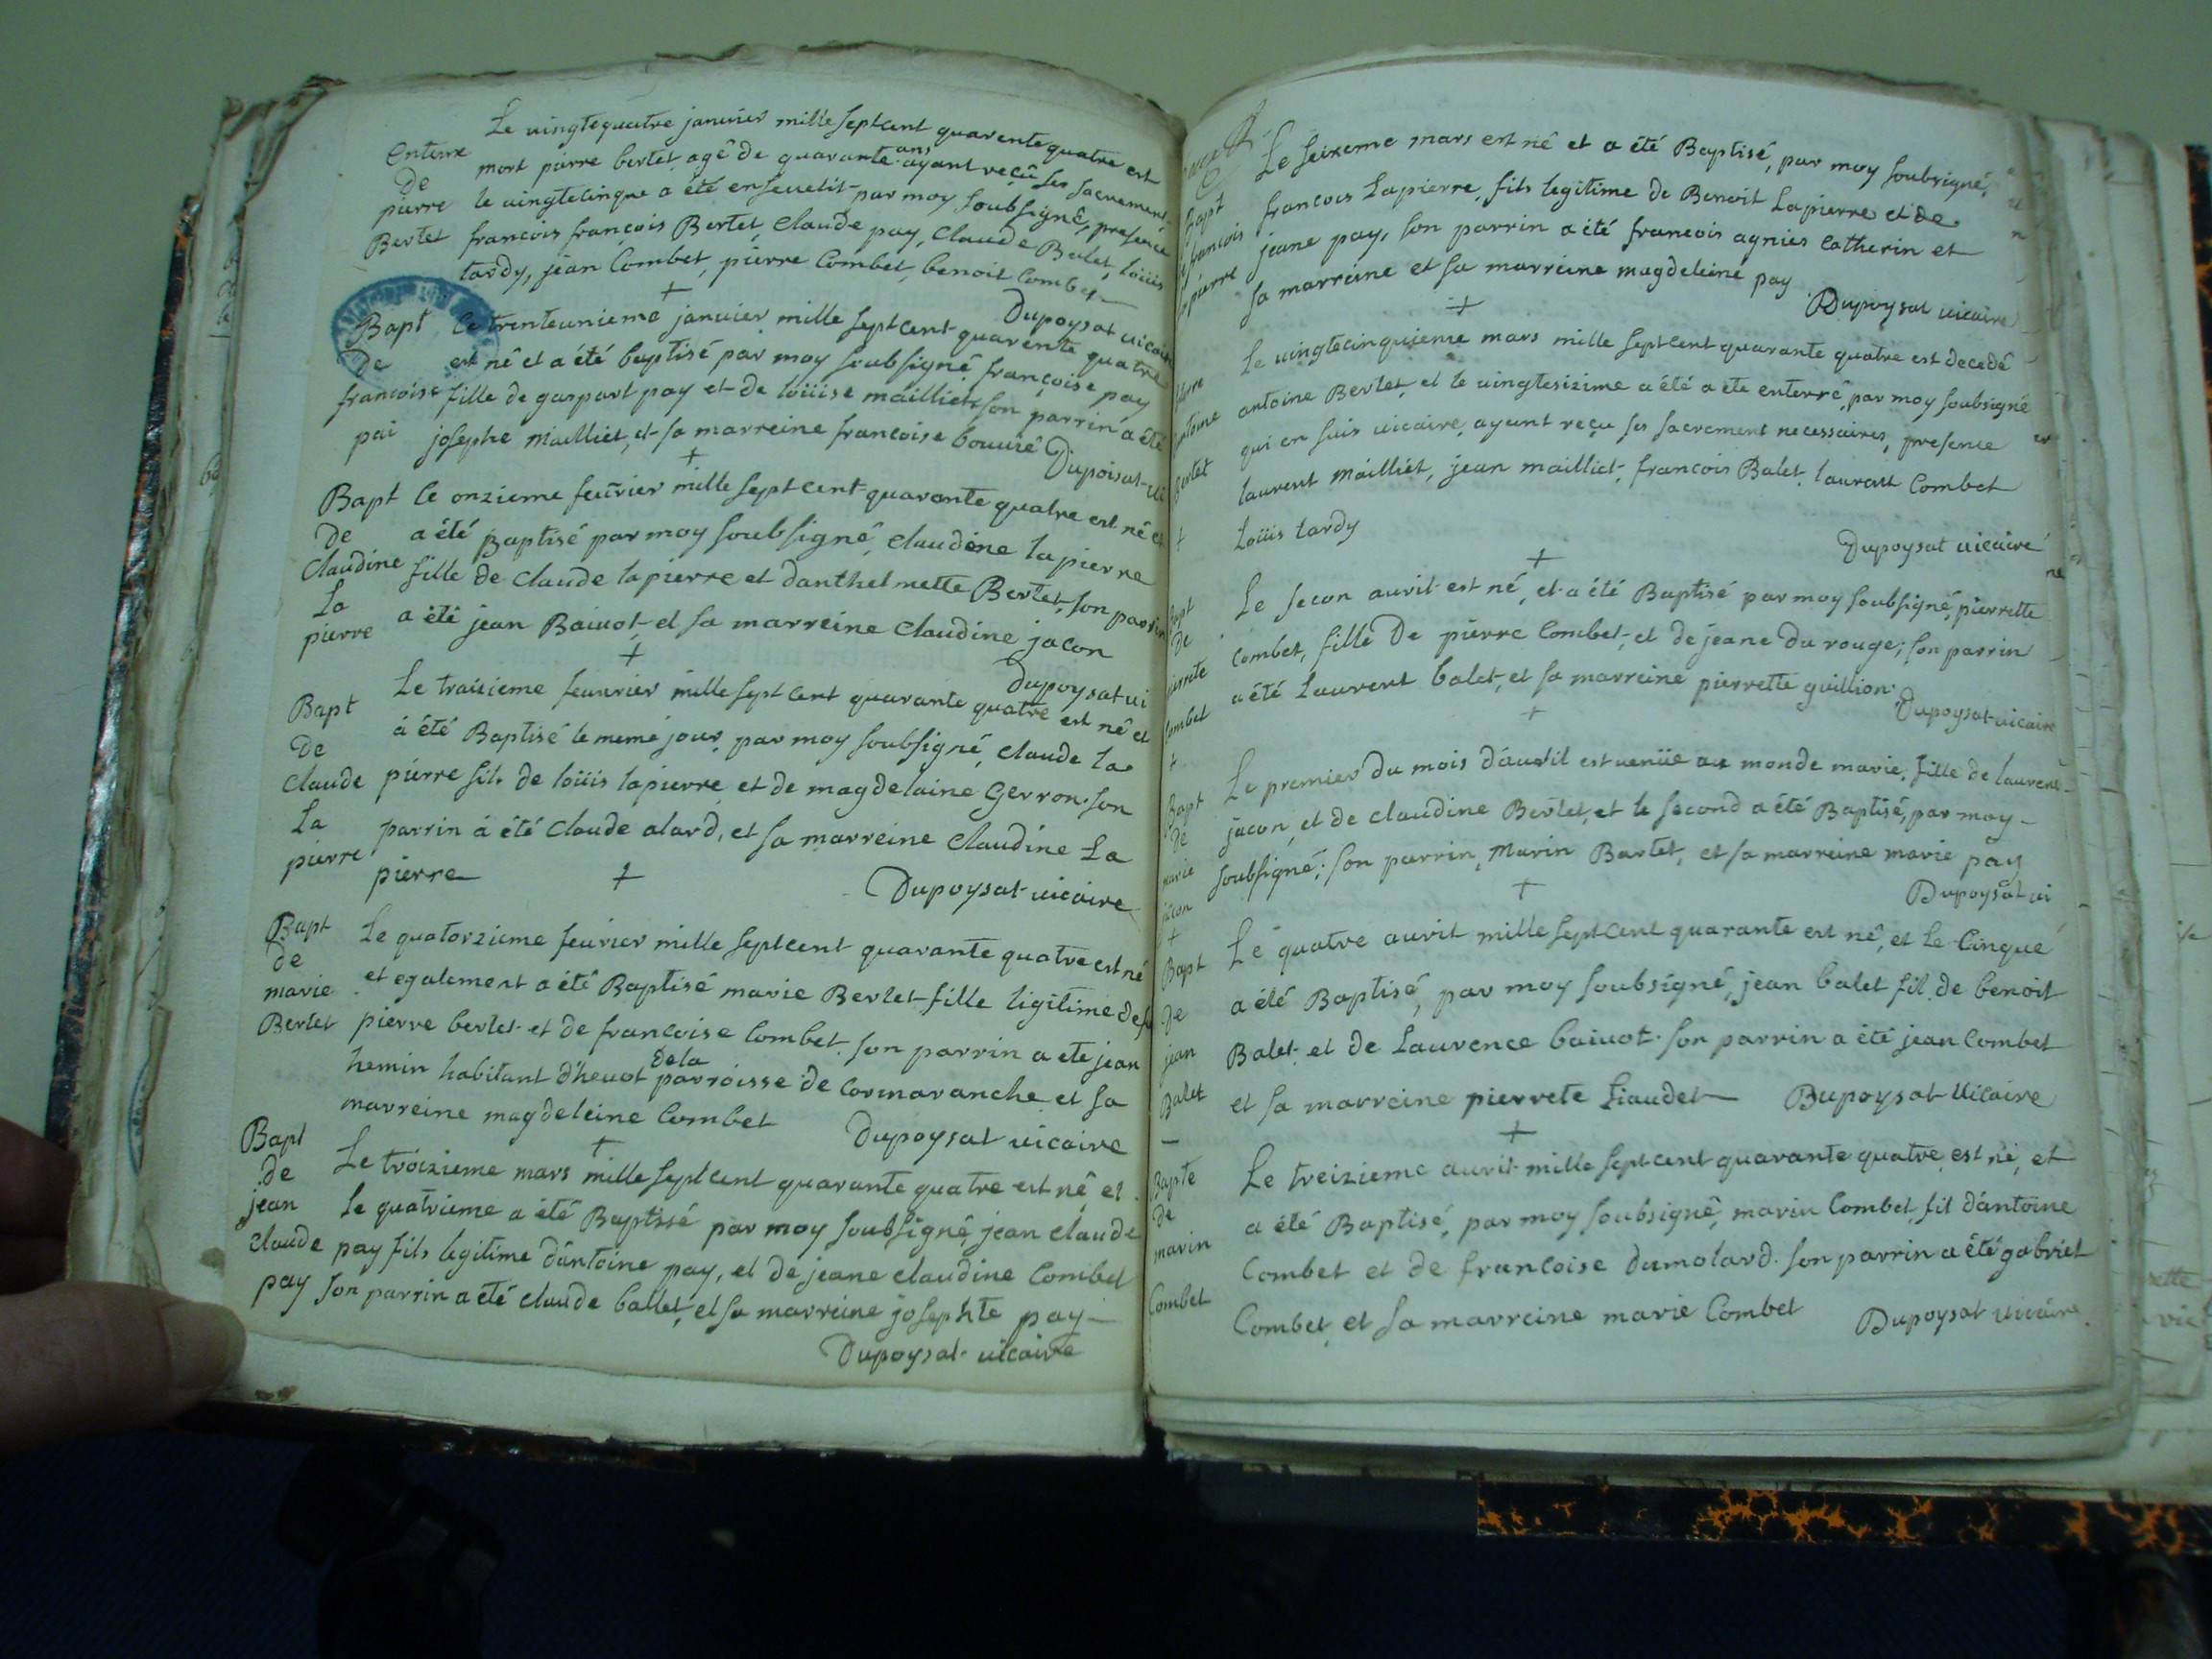 Le vingtequatre janvier mille septcent quarente quatre est
Enterre
mort pierre bertet agé de quarante ans ayant reçü ses sacremens
De
pierre
le vingtecinque a été enseuelit par moy soubsigné, presence
Bertet
francois françois Bertet, Claude pay, Claude Balet, loüis
tardy, jean Combet, pierre Combet, benoit Combet
Dupoysat vicaire
Bapt
De
francoise
pai
Le trenteunieme janvier mille septcent quarente quatre
est né et a été baptisé par moy soubsigné françoise pay
fille de gaspart pay et de loüise mailliet, son parrin a été
josephe mailliet, et sa marreine francoise bouuié
Dupoisat vi
Bapt
De
Claudine
La
pierre
le onzieme feuvrier mille septcent quarante quatre est né et
a été Baptisé par moy soubsigné, claudine lapierre
fille de claude lapierre et danthelmette Bertet, son parrin
a été jean Baiuot et sa marreine Claudine jacon
Dupoysat vi
Bapt
De
Claude
La
pierre
Le traizieme feuurier mille septcent quarante quatre est né et
á été Baptisé le meme jour, par moy soubsigné, claude la
pierre fils de loüis lapierre et de magdelaine Gerron. son
parrin á été Claude alard, et sa marreine Claudine La
pierre
Dupoysat vicaire
Bapt
de
marie
Bertet
Le quatorzieme feurier mille septcent quarante quatre est né
et egalement a été Baptisé marie Bertet fille legitime de fu
pierre bertet et de francoise Combet. son parrin a ete jean
hemin habitant d'heuot de la parroisse de Cormaranche et sa
marreine magdeleine Combet
Dupoysat vicaire
Bapt
de
jean
Claude
pay
Le troizieme mars mille septcent quarante quatre est né et
le quatrieme a été Baptissé par moy soubsigné, jean claude
pay fils legitime d'antoine pay, et de jeane claudine Combet
son parrin a été claude ballet, et sa marreine josephte pay
Dupoysat vicaire
Bapt
francois
pierre
Le seixeme mars est né et a été Baptisé, par moy soubsigné,
francois Lapierre, fils legitime de Benoit Lapierre et de
jeane pay, son parrin a été francois agnies Catherin et
sa marreine et sa marreine magdeleine pay
Dupoysat vicaire
antoine
Bertet
Le vingtecinquieme mars mille septcent quarante quatre est decedé
antoine Bertet, et le vingtesizime a été a ete enterré, par moy soubsigné
qui en suis vicaire, ayant reçu ses sacrement necessaires, presence
laurent mailliét, jean mailliet, francois Balet, laurent Combet
Loüis tardy
Dupoysat vicaire
Bapt
De
pierrete
Combet
Le secon auvril est né, et a été Baptisé par moy soubsigné, pierrette
Combet, fille De pierre Combet, et de jeane du rouge; son parrin
a été Laurent balet, et sa marreine pierrette guillion
Dupoysat vicaire
Bapt
de
marie
jacon
Le premier du mois d'auvril est venüe au monde marie, fille de laurent
jacon, et de claudine Bertet, et le second a été Baptisé, par moy
soubsigné; son parrin, Marin Bartet, et sa marreine marie pay
Dupoysat vi
Bapt
De
jean
Balet
Le quatre auvril mille septcent quarante est né, et Le Cinque
a été Baptisé, par moy soubsigné, jean balet fil de benoit
Balet et de Laurence baiuot. son parrin a été jean Combet
et sa marreine pierrete Liaudet
Dupoysat Vicaire
Bapte
de
marin
Combet
Le treizieme auvril mille septcent quarante quatre est né, et
a été Baptisé, par moy soubsigné, marin Combet, fil d'antoine
Combet et de francoise dumolard. son parrin a été gabriel
Combet et sa marreine marie Combet
Dupoysat vicaire